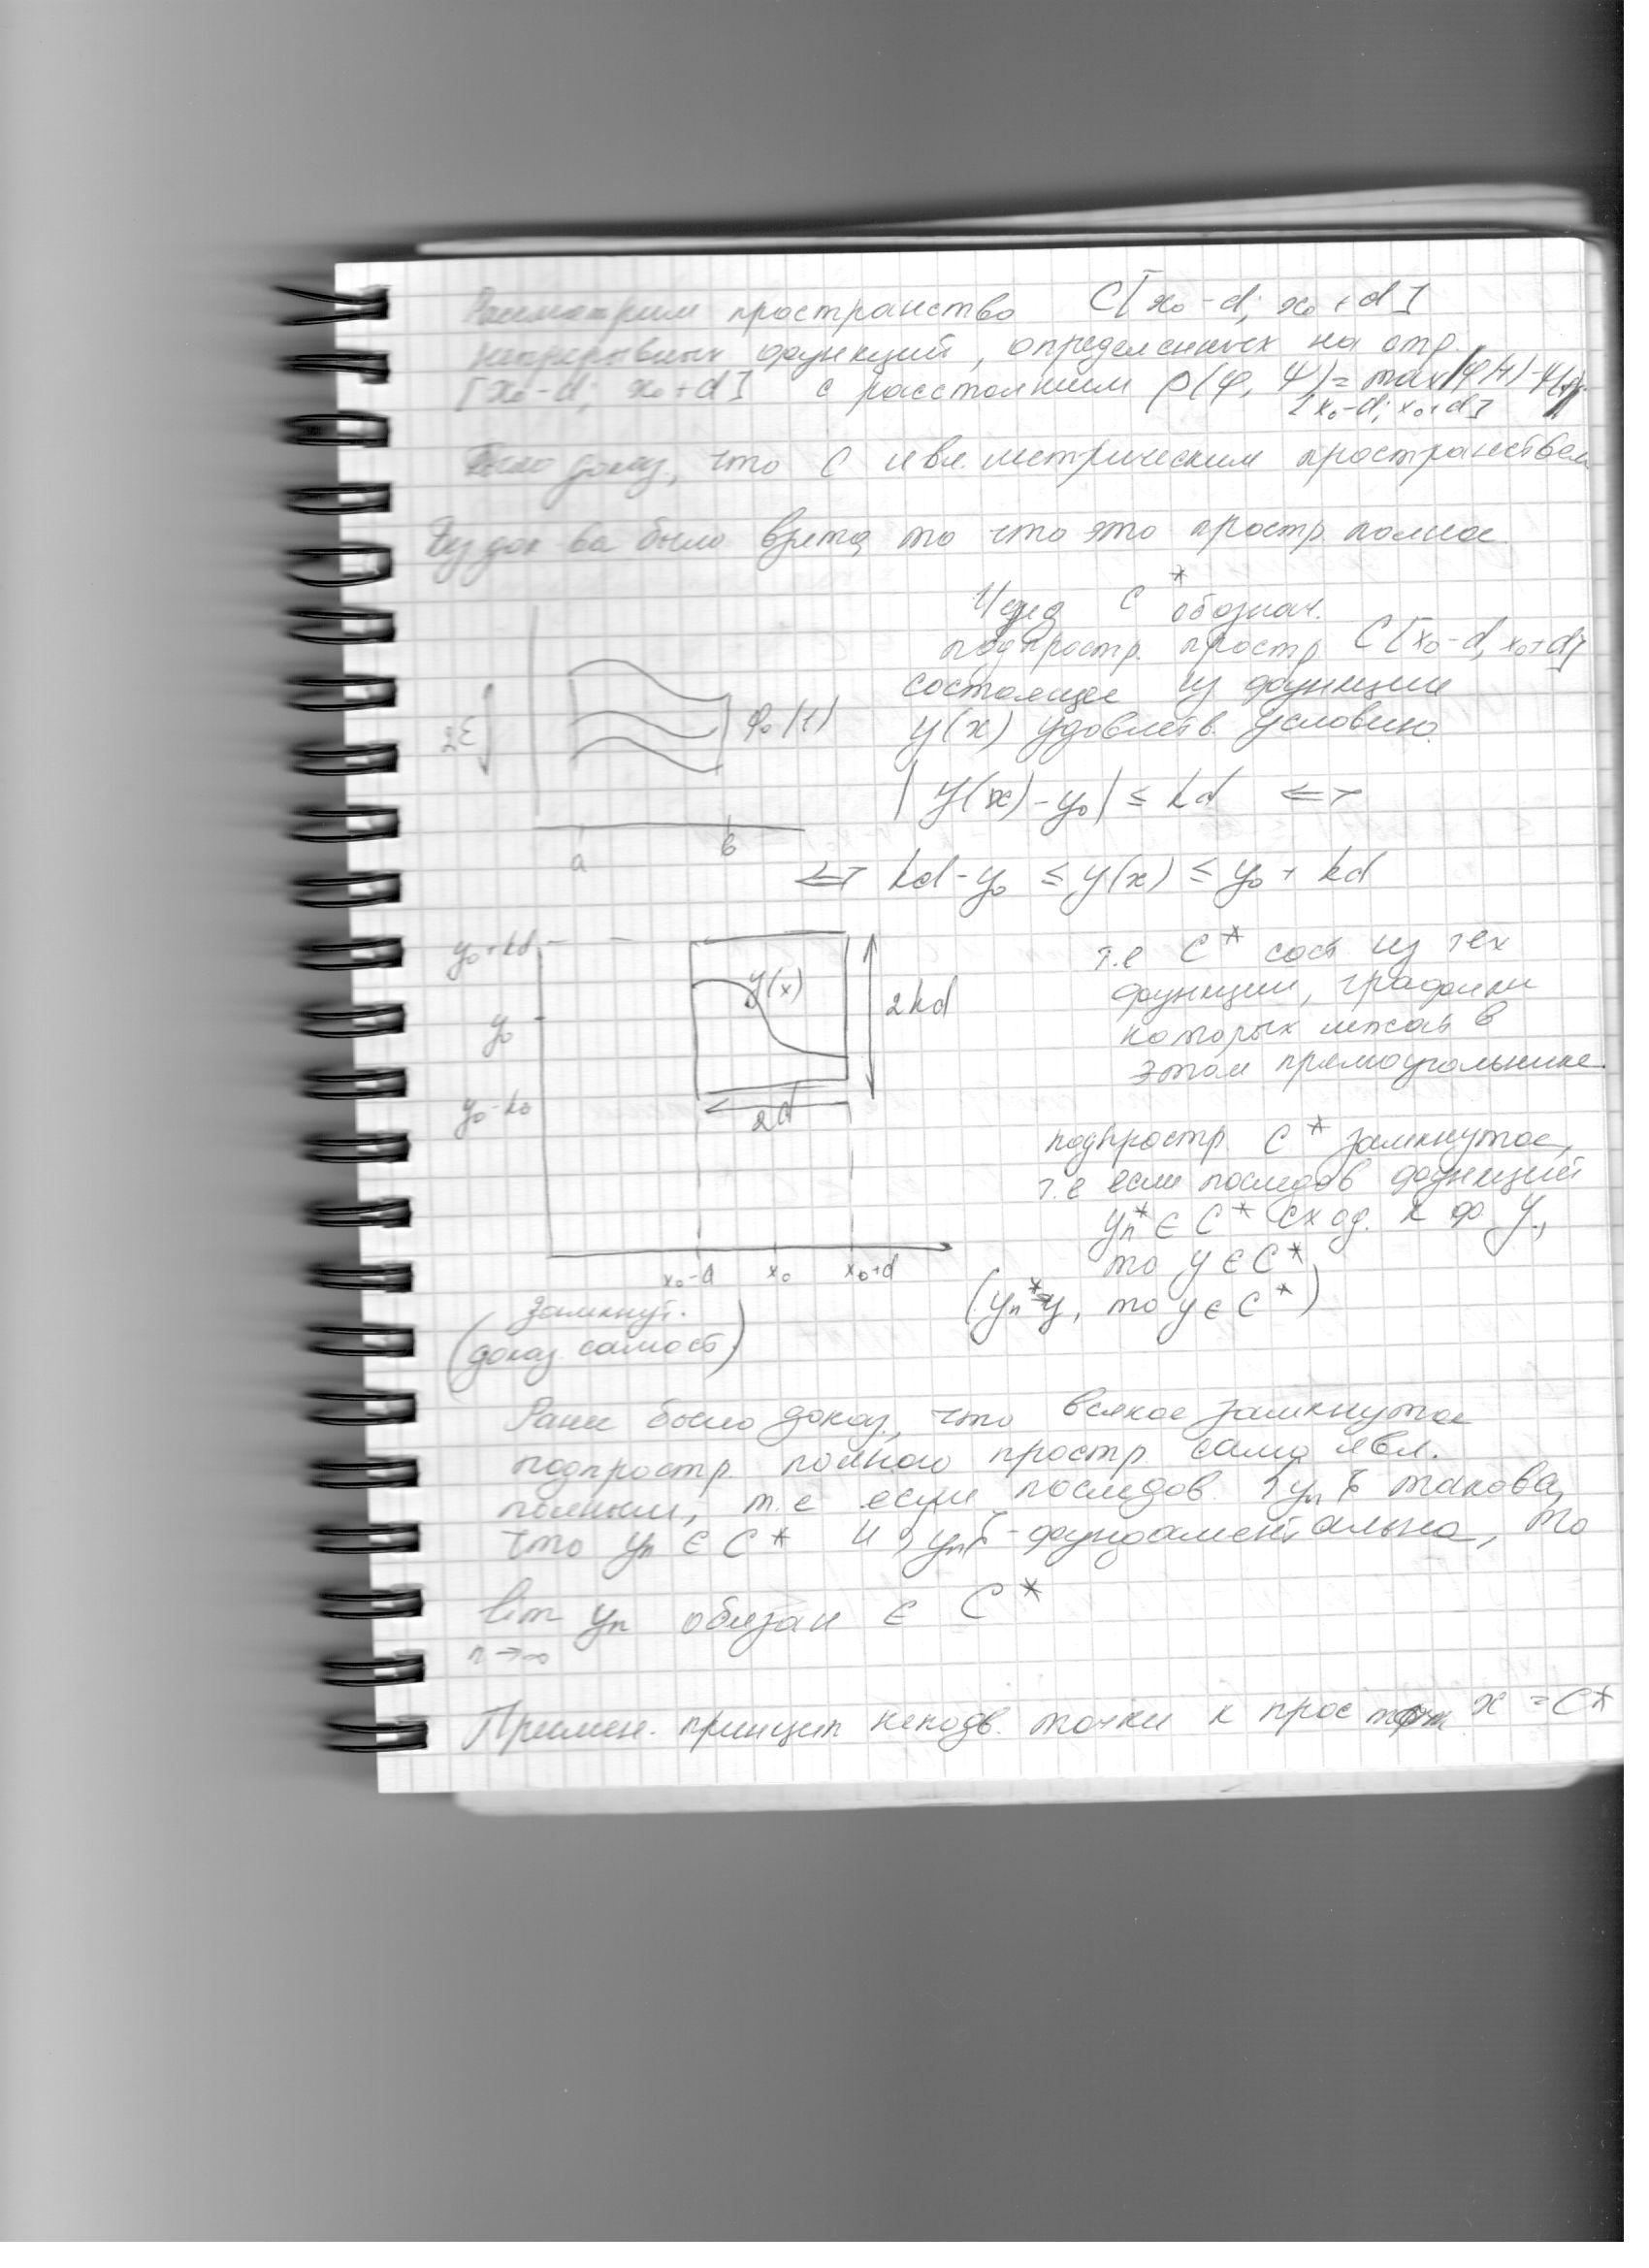 Рассмотрим пространство C[x₀-d; x₀+d]
непрерывных функций, определенных на отр.
[x₀-d; x₀+d] с расстоянием ρ(φ, ψ) = max|φ(t)-ψ(t)|
[x₀-d; x₀+d]
Было доказ, что C явл. метрическим пространством
было то что это простр полное
Через C* обознач.
подпростр. простр C[x₀-d, x₀+d]
состоящее из функции
y(x) удовлетв. условию.
2ε
φ₀(t)
a
в
|y(x)-y₀| ≤ kd <=>
<=> kd-y₀ ≤ y(x) ≤ y₀+kd
y₀+kd
y₀
y₀-k₀
y(x)
2kd
2d
x₀-d x₀ x₀+d
т.е C* сост из тех
функции, графики
которых лежат в
этом прямоугольнике.
подпростр. C* замкнутое,
т.е если последов функций
yₙ* ∈ C* сход. к ф. y,
то y ∈ C*
(yₙ*→y, то y ∈ C*)
(замкнут.
доказ самост)
Ранее было доказ, что всякое замкнутое
подпростр. полного простр само явл.
полным, т.е если последов. {yₙ} такова,
что yₙ ∈ C* и {yₙ} - фундаментальна, то
lim yₙ обязан ∈ C*
n→∞
Примен. принцип неподв. точки к x = C*